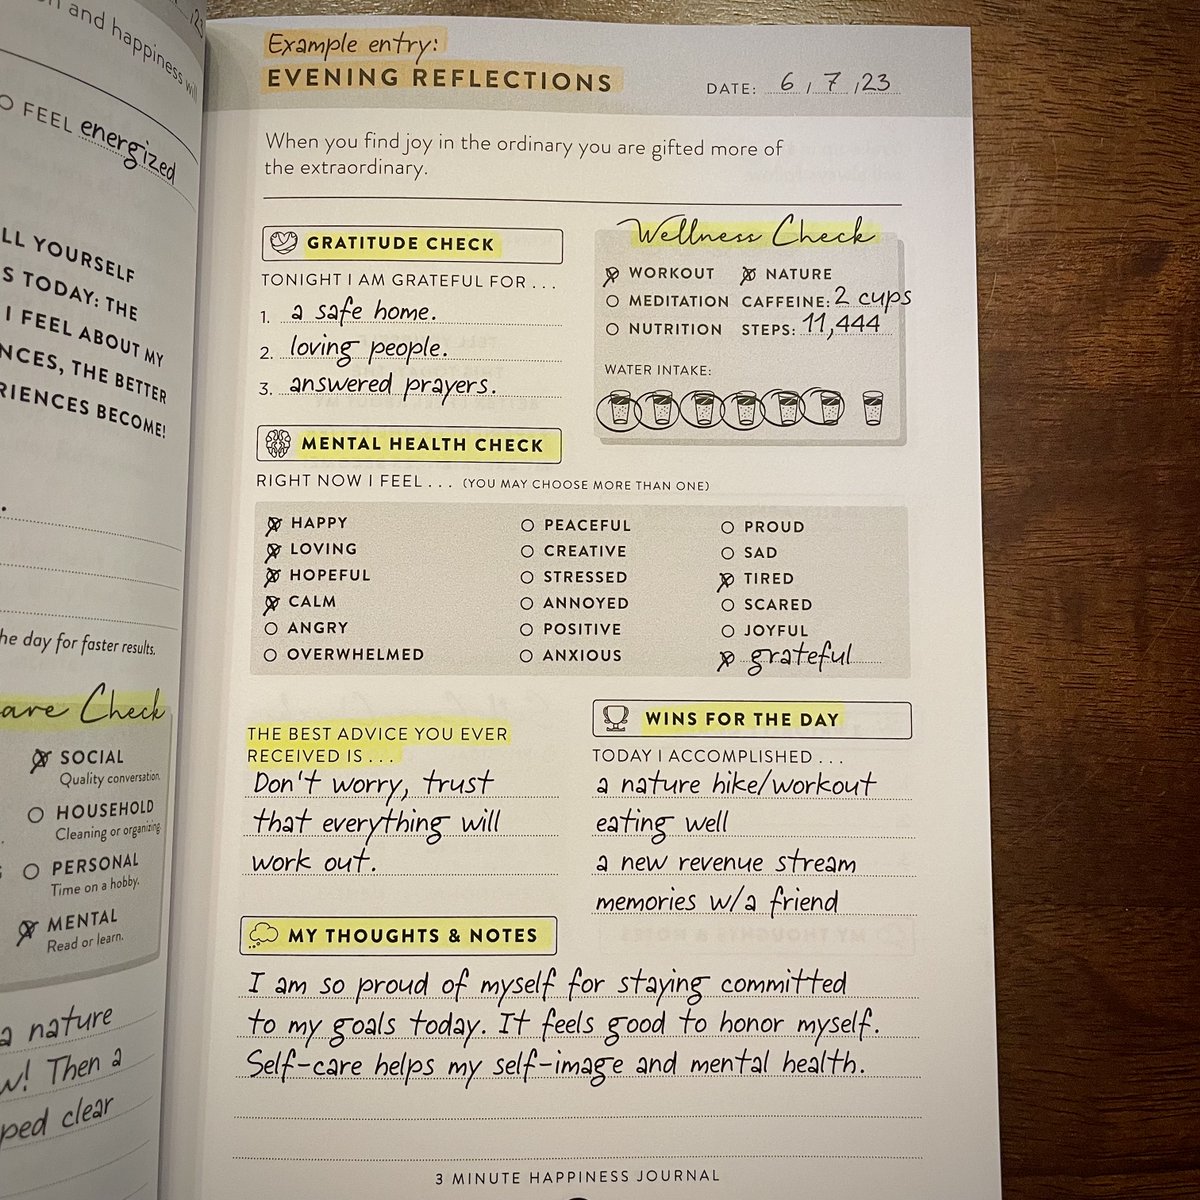 n and happiness will
/23
O FEEL energized
LL YOURSELF
S TODAY: THE
I FEEL ABOUT MY
NCES, THE BETTER
RIENCES BECOME!
he day for faster results.
are Check
SOCIAL
Quality conversation.
HOUSEHOLD
Cleaning or organizing.
PERSONAL
Time on a hobby.
MENTAL
Read or learn.
a nature
w! Then a
ped clear
Example entry:
EVENING REFLECTIONS
DATE: 6 / 7 / 23
When you find joy in the ordinary you are gifted more of
the extraordinary.
GRATITUDE CHECK
TONIGHT I AM GRATEFUL FOR . . .
1. a safe home.
2. loving people.
3. answered prayers.
Wellness Check
WORKOUT NATURE
MEDITATION CAFFEINE: 2 cups
NUTRITION STEPS: 11,444
WATER INTAKE:
MENTAL HEALTH CHECK
RIGHT NOW I FEEL . . . (YOU MAY CHOOSE MORE THAN ONE)
HAPPY PEACEFUL PROUD
LOVING CREATIVE SAD
HOPEFUL STRESSED TIRED
CALM ANNOYED SCARED
ANGRY POSITIVE JOYFUL
OVERWHELMED ANXIOUS grateful
THE BEST ADVICE YOU EVER
RECEIVED IS . . .
Don't worry, trust
that everything will
work out.
WINS FOR THE DAY
TODAY I ACCOMPLISHED . . .
a nature hike/workout
eating well
a new revenue stream
memories w/a friend
MY THOUGHTS & NOTES
I am so proud of myself for staying committed
to my goals today. It feels good to honor myself.
Self-care helps my self-image and mental health.
3 MINUTE HAPPINESS JOURNAL